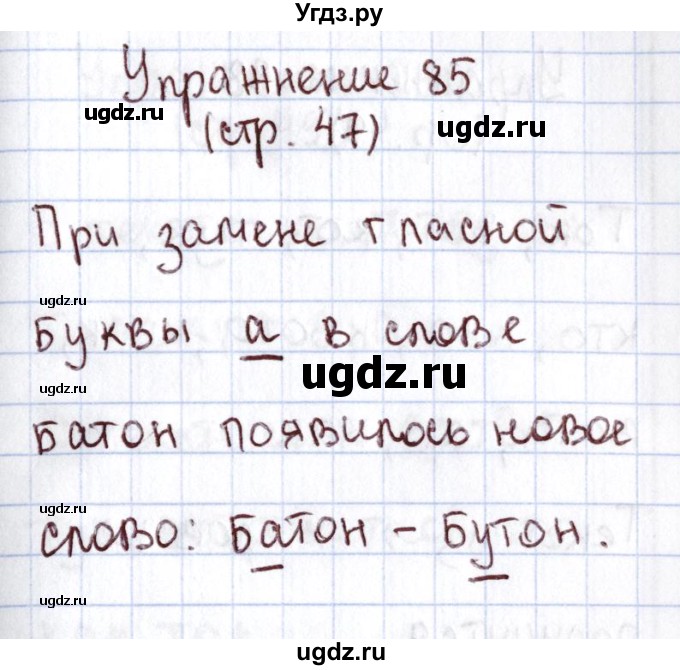 Угдз.ру
Упражнение 85
ugdz.ru
ugdz.ru
(стр. 47)
При замене гласной
ugdz.ru
буквы а в слове
ugdz.ru
ugdz.ru
батон появилось новое
ugdz.ru
слово: Батон – Бутон.
ugdz.ru
ugdz.ru